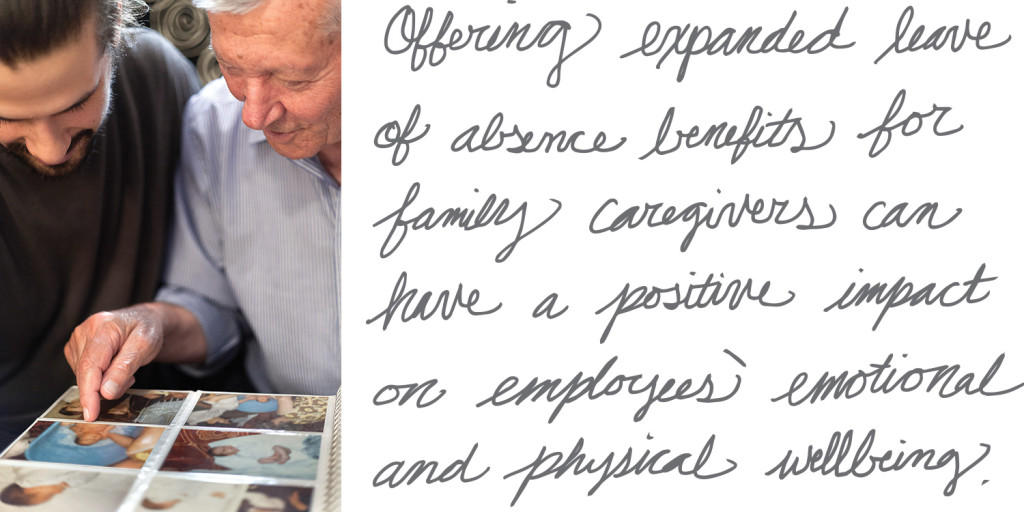 Offering expanded leave
of absence benefits for
family caregivers can
have a positive impact
on employees' emotional
and physical wellbeing.